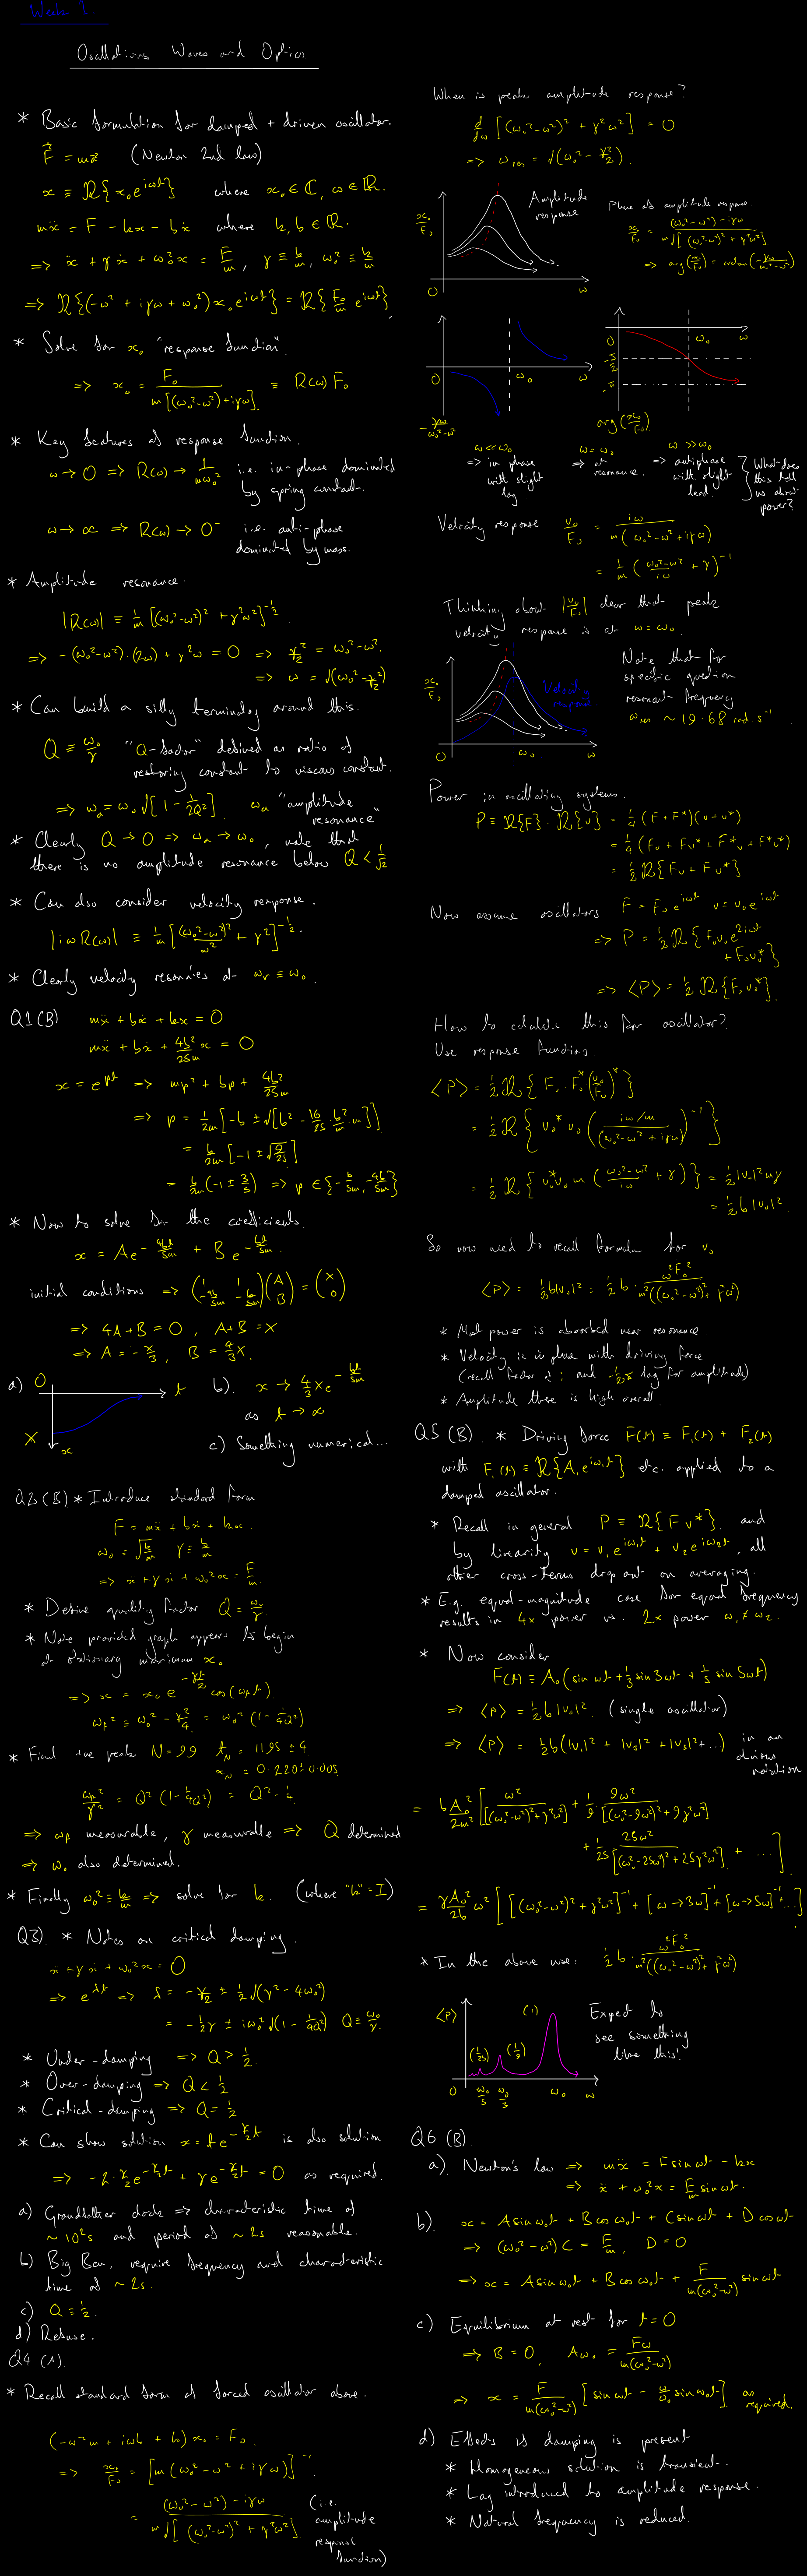 Week 1
Oscillations Waves and Optics
* Basic formulation for damped + driven oscillator.
F = mẍ (Newton 2nd law)
x ≡ ℜ{x₀e^{iωt}} where x₀ ∈ ℂ, ω ∈ ℝ.
mẍ = F - kx - bẋ where k, b ∈ ℝ.
=> ẍ + γẋ + ω₀²x = F/m, γ ≡ b/m, ω₀² ≡ k/m
=> ℜ{(-ω² + iγω + ω₀²) x₀e^{iωt}} = ℜ{F₀/m e^{iωt}}
* Solve for x₀ "response function".
=> x₀ = F₀ / m[(ω₀²-ω²)+iγω] ≡ R(ω) F₀
* Key features of response function.
ω → 0 => R(ω) → 1/mω₀² i.e. in-phase dominated
by spring constant.
ω → ∞ => R(ω) → 0⁻ i.e. anti-phase
dominated by mass.
* Amplitude resonance.
|R(ω)| ≡ 1/m [(ω₀²-ω²)² + γ²ω²]^{-1/2}
=> -(ω₀²-ω²)·(2ω) + γ²ω = 0 => γ²/2 = ω₀²-ω².
=> ω = √(ω₀²-γ²/2)
* Can build a silly terminology around this.
Q ≡ ω₀/γ "Q-factor" defined as ratio of
restoring constant to viscous constant.
=> ωₐ = ω₀√[1 - 1/2Q²] ωₐ "amplitude
resonance"
* Clearly Q → 0 => ωₐ → ω₀, note that
there is no amplitude resonance below Q < 1/√2
* Can also consider velocity response.
|iωR(ω)| ≡ 1/m [(ω₀²-ω²)²/ω² + γ²]^{-1/2}
* Clearly velocity resonates at ωᵥ ≡ ω₀.
Q1 (B) mẍ + bẋ + kx = 0
mẍ + bẋ + 4b²/25m x = 0
x = e^{pt} => mp² + bp + 4b²/25m
=> p = 1/2m [-b ± √[b² - 16/25 · b²/m · m]]
= b/2m [-1 ± √(9/25)]
= b/2m (-1 ± 3/5) => p ∈ {-b/5m, -4b/5m}
* Now to solve for the coefficients.
x = Ae^{-4bt/5m} + Be^{-bt/5m}
initial conditions => (1 1; -4b/5m -b/5m)(A; B) = (X; 0)
=> 4A + B = 0, A + B = X
=> A = -X/3, B = 4/3 X.
a) 0 t
X x
b). x → 4/3 X e^{-bt/5m}
as t → ∞
c) Something numerical...
Q2 (B) * Introduce standard form
F = mẍ + bẋ + kx.
ω₀ = √(k/m) γ = b/m
=> ẍ + γẋ + ω₀²x = F/m.
* Define quality factor Q = ω₀/γ.
* Note provided graph appears to begin
at stationary maximum x₀
=> x = x₀ e^{-γt/2} cos(ω_f t).
ω_f² ≡ ω₀² - γ²/4 = ω₀² (1 - 1/4Q²)
* Final +ve peak N = 99 t_N = 1195 ± 4
x_N = 0.220 ± 0.005
ω_f²/γ² = Q² (1 - 1/4Q²) = Q² - 1/4
=> ω_f measurable, γ measurable => Q determined
=> ω₀ also determined.
* Finally ω₀² ≡ k/m => solve for k. (where "k" = I)
Q3). * Notes on critical damping.
ẍ + γẋ + ω₀²x = 0
=> e^{λt} => λ = -γ/2 ± 1/2 √(γ² - 4ω₀²)
= -1/2 γ ± iω₀√(1 - 1/4Q²) Q ≡ ω₀/γ.
* Under-damping => Q > 1/2.
* Over-damping => Q < 1/2
* Critical-damping => Q = 1/2
* Can show solution x = te^{-γ/2 t} is also solution
=> -2·γ/2 e^{-γ/2 t} + γe^{-γ/2 t} = 0 as required.
a) Grandfather clock => characteristic time of
~10²s and period of ~2s reasonable.
b) Big Ben, require frequency and characteristic
time of ~2s.
c) Q = 1/2.
d) Refuse.
Q4 (A).
* Recall standard form of forced oscillator above.
(-ω²m + iωb + k) x₀ = F₀
=> x₀/F₀ = [m(ω₀² - ω² + iγω)]⁻¹
= (ω₀²-ω²) - iγω / m√[(ω₀²-ω²)² + γ²ω²] (i.e.
amplitude
response
function)
When is peak amplitude response?
d/dω [(ω₀²-ω²)² + γ²ω²] = 0
=> ω_res = √(ω₀² - γ²/2).
x₀/F₀ Amplitude
response
0 ω
Phase of amplitude response.
x₀/F₀ = (ω₀²-ω²) - iγω / m√[(ω₀²-ω²)² + γ²ω²]
=> arg(x₀/F₀) = arctan(-γω/ω₀²-ω²)
0 ω₀ ω
-γω/ω₀²-ω²
0 ω₀ ω
-π/2
-π
arg(x₀/F₀)
ω << ω₀ => in phase with slight lag.
ω = ω₀ => at resonance.
ω >> ω₀ => antiphase with slight lead.
What does this tell us about power?
Velocity response v₀/F₀ = iω / m(ω₀²-ω²+iγω)
= 1/m (ω₀²-ω²/iω + γ)⁻¹
Thinking about |v₀/F₀| clear that peak
velocity response is at ω = ω₀.
x₀/F₀ Velocity
response
0 ω₀ ω
Note that for
specific question
resonant frequency
ω_res ~ 19.68 rad s⁻¹.
Power in oscillating systems.
P ≡ ℜ{F}·ℜ{v} = 1/4 (F+F*)(v+v*)
= 1/4 (Fv + Fv* + F*v + F*v*)
= 1/2 ℜ{Fv + Fv*}
Now assume oscillators F = F₀e^{iωt} v = v₀e^{iωt}
=> P = 1/2 ℜ{F₀v₀e^{2iωt}
+ F₀v₀*}
=> <P> = 1/2 ℜ{F₀v₀*}.
How to calculate this for oscillator?
Use response function.
<P> = 1/2 ℜ{F₀·F₀*(v₀/F₀)*}
= 1/2 ℜ{v₀*v₀ (iω/m / (ω₀²-ω²+iγω))⁻¹}
= 1/2 ℜ{v₀*v₀ m (ω₀²-ω²/iω + γ)} = 1/2 |v₀|² mγ
= 1/2 b|v₀|².
So now need to recall formula for v₀
<P> = 1/2 b|v₀|² = 1/2 b · ω²F₀² / m²((ω₀²-ω²)² + γ²ω²)
* Most power is absorbed near resonance.
* Velocity is in phase with driving force
(recall factor of i and -1/2π lag for amplitude)
* Amplitude there is high overall.
Q5 (B). * Driving force F(t) ≡ F₁(t) + F₂(t)
with F₁(t) ≡ ℜ{A₁e^{iω₁t}} etc. applied to a
damped oscillator.
* Recall in general P ≡ ℜ{Fv*}. and
by linearity v = v₁e^{iω₁t} + v₂e^{iω₂t}, all
other cross-terms drop out on averaging.
* E.g. equal-magnitude case for equal frequency
results in 4x power vs. 2x power ω₁ ≠ ω₂.
* Now consider
F(t) = A₀(sin ωt + 1/3 sin 3ωt + 1/5 sin 5ωt)
=> <P> = 1/2 b|v₀|². (single oscillator)
=> <P> = 1/2 b(|v₁|² + |v₃|² + |v₅|² + ...) in an
obvious
notation
= bA₀²/2m² [ω²/[(ω₀²-ω²)²+γ²ω²] + 1/9 9ω²/[(ω₀²-9ω²)²+9γ²ω²]
+ 1/25 25ω²/[(ω₀²-25ω²)²+25γ²ω²] + ...]
= γA₀²/2b ω² [[(ω₀²-ω²)²+γ²ω²]⁻¹ + [ω→3ω]⁻¹ + [ω→5ω]⁻¹...]
* In the above use: 1/2 b · ω²F₀² / m²((ω₀²-ω²)² + γ²ω²)
<P> (1)
(1/25) (1/9)
0 ω₀/5 ω₀/3 ω₀ ω
Expect to
see something
like this!
Q6 (B).
a). Newton's law => mẍ = F sin ωt - kx
=> ẍ + ω₀²x = F/m sin ωt.
b). x = A sin ω₀t + B cos ω₀t + C sin ωt + D cos ωt
=> (ω₀²-ω²) C = F/m, D = 0
=> x = A sin ω₀t + B cos ω₀t + F/m(ω₀²-ω²) sin ωt
c) Equilibrium at rest for t = 0
=> B = 0, Aω₀ = Fω/m(ω₀²-ω²)
=> x = F/m(ω₀²-ω²) [sin ωt - ω/ω₀ sin ω₀t] as
required.
d) Effects if damping is present
* Homogeneous solution is transient.
* Lag introduced to amplitude response.
* Natural frequency is reduced.